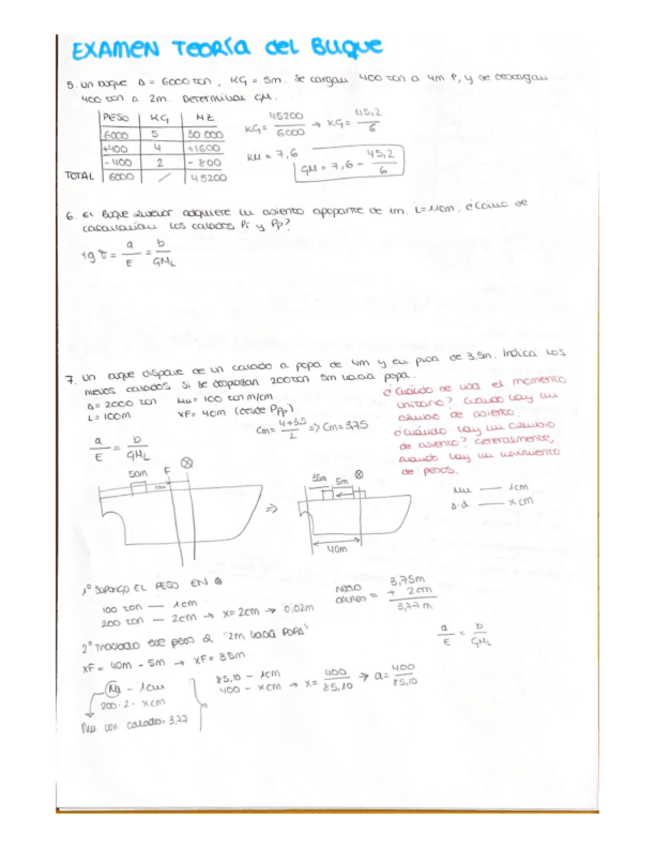 EXAMEN TEORÍA del BUQUE
5. Un buque Δ = 6000 ton, KG = 5m. Se cargan 400 ton a 4m P, y se descargan
400 ton a 2m. Determinar GM.
PESO KG MZ
6000 5 30 000
+400 4 +1600
-400 2 - 800
TOTAL 6000 / 45200
KG = 45200 / 6000 → KG = 45,2 / 6
KM = 7,6
GM = 7,6 - 45,2 / 6
6. El buque adquiere un asiento apopante de 1m. L=110m. ¿Cómo se
calcularían los calados Pr y Pp?
tg τ = a / E = b / GML
7. Un buque dispone de un calado a popa de 4m y en proa de 3,5m. Indica los
nuevos calados si se desplazan 200 ton 5m hacia popa.
Δ = 2000 ton Mu = 100 ton m/cm
L = 100m XF = 40m (desde Ppp)
Cm = 4+3,5 / 2 => Cm = 3,75
a / E = b / GML
¿Cuándo se usa el momento
unitario? Cuando hay un
cambio de asiento.
¿Cuándo hay un cambio
de asiento? Generalmente,
cuando hay un movimiento
de pesos.
50m F ⊗
=>
35m 5m ⊗
40m
Mu — 1cm
Δ·d — x cm
1º SUPONGO EL PESO EN ⊗
100 ton — 1cm
200 ton — 2cm → x = 2cm → 0,02m
CALADO = 3,75m
+ 2cm
3,77 m
2º Traslado ese peso a "2m hacia POPA"
XF = 40m - 5m → XF = 35m
Mu - 1cm
200·2 - x cm
Mu con calado 3,77
85,10 - 1cm
400 - x cm → x = 400 / 85,10 → a = 400 / 85,10
a / E = b / GML